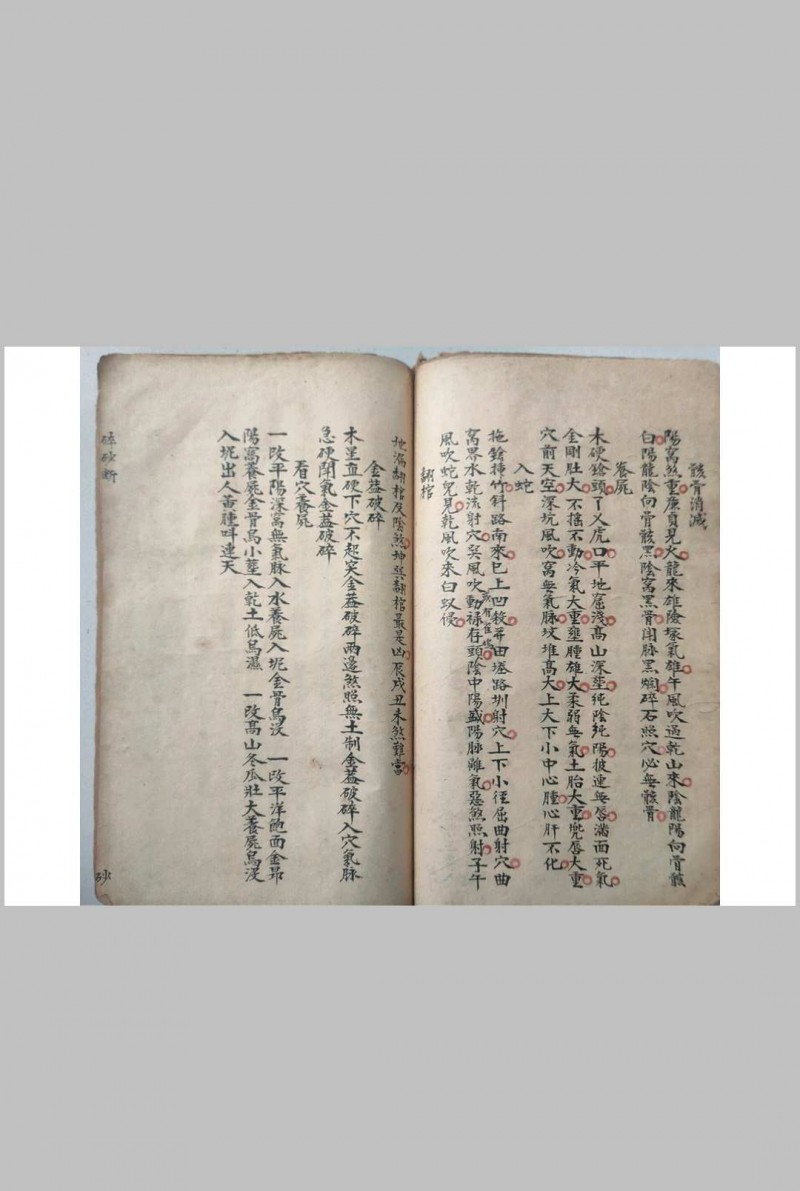 骸骨消滅
陽窩煞重廉貞見火龍來雄險塚氣雄午風吹過乾山來陰龍陽向骨骸
白陽龍陰向骨骸黑陰窩黑骨閉脉黑爛碎石照穴必無骸骨
養屍
木硬鎗頭丫乂虎口平地窟淺高山深塟純陰純陽披連無唇滿面死氣
金剛肚大不搖不動冷氣大重壅腫雄大柔弱無氣土胎大重兜唇大重
穴前天空深坑風吹窩無氣脉坟堆高大上大下小中心腫心肝不化
入蛇
拖鎗揷竹斜路南來巳上凹殺界田塔路圳射穴上下小徑屈曲射穴曲
窩界水乾流射穴巽風吹動祿存頭陰中陽盛陽脉離氣惡煞照射子午
風吹蛇兒見乾風吹來白蚁侵
翻棺
地漏翻棺及陰煞坤巽翻棺最是凶辰戌丑未煞難當
金葢破碎
木星直硬下穴不起突金葢破碎兩邊煞照無土制金葢破碎入穴氣脉
急硬閉氣金葢破碎
看穴養屍
一改平陽深窩無氣脉入水養屍入坭金骨烏浸 一改平洋飽面金昂
陽窩養屍金骨烏小塟入乾土低烏濕 一改高山冬瓜壯大養屍烏浸
入坭出人黃腫呌連天
砂